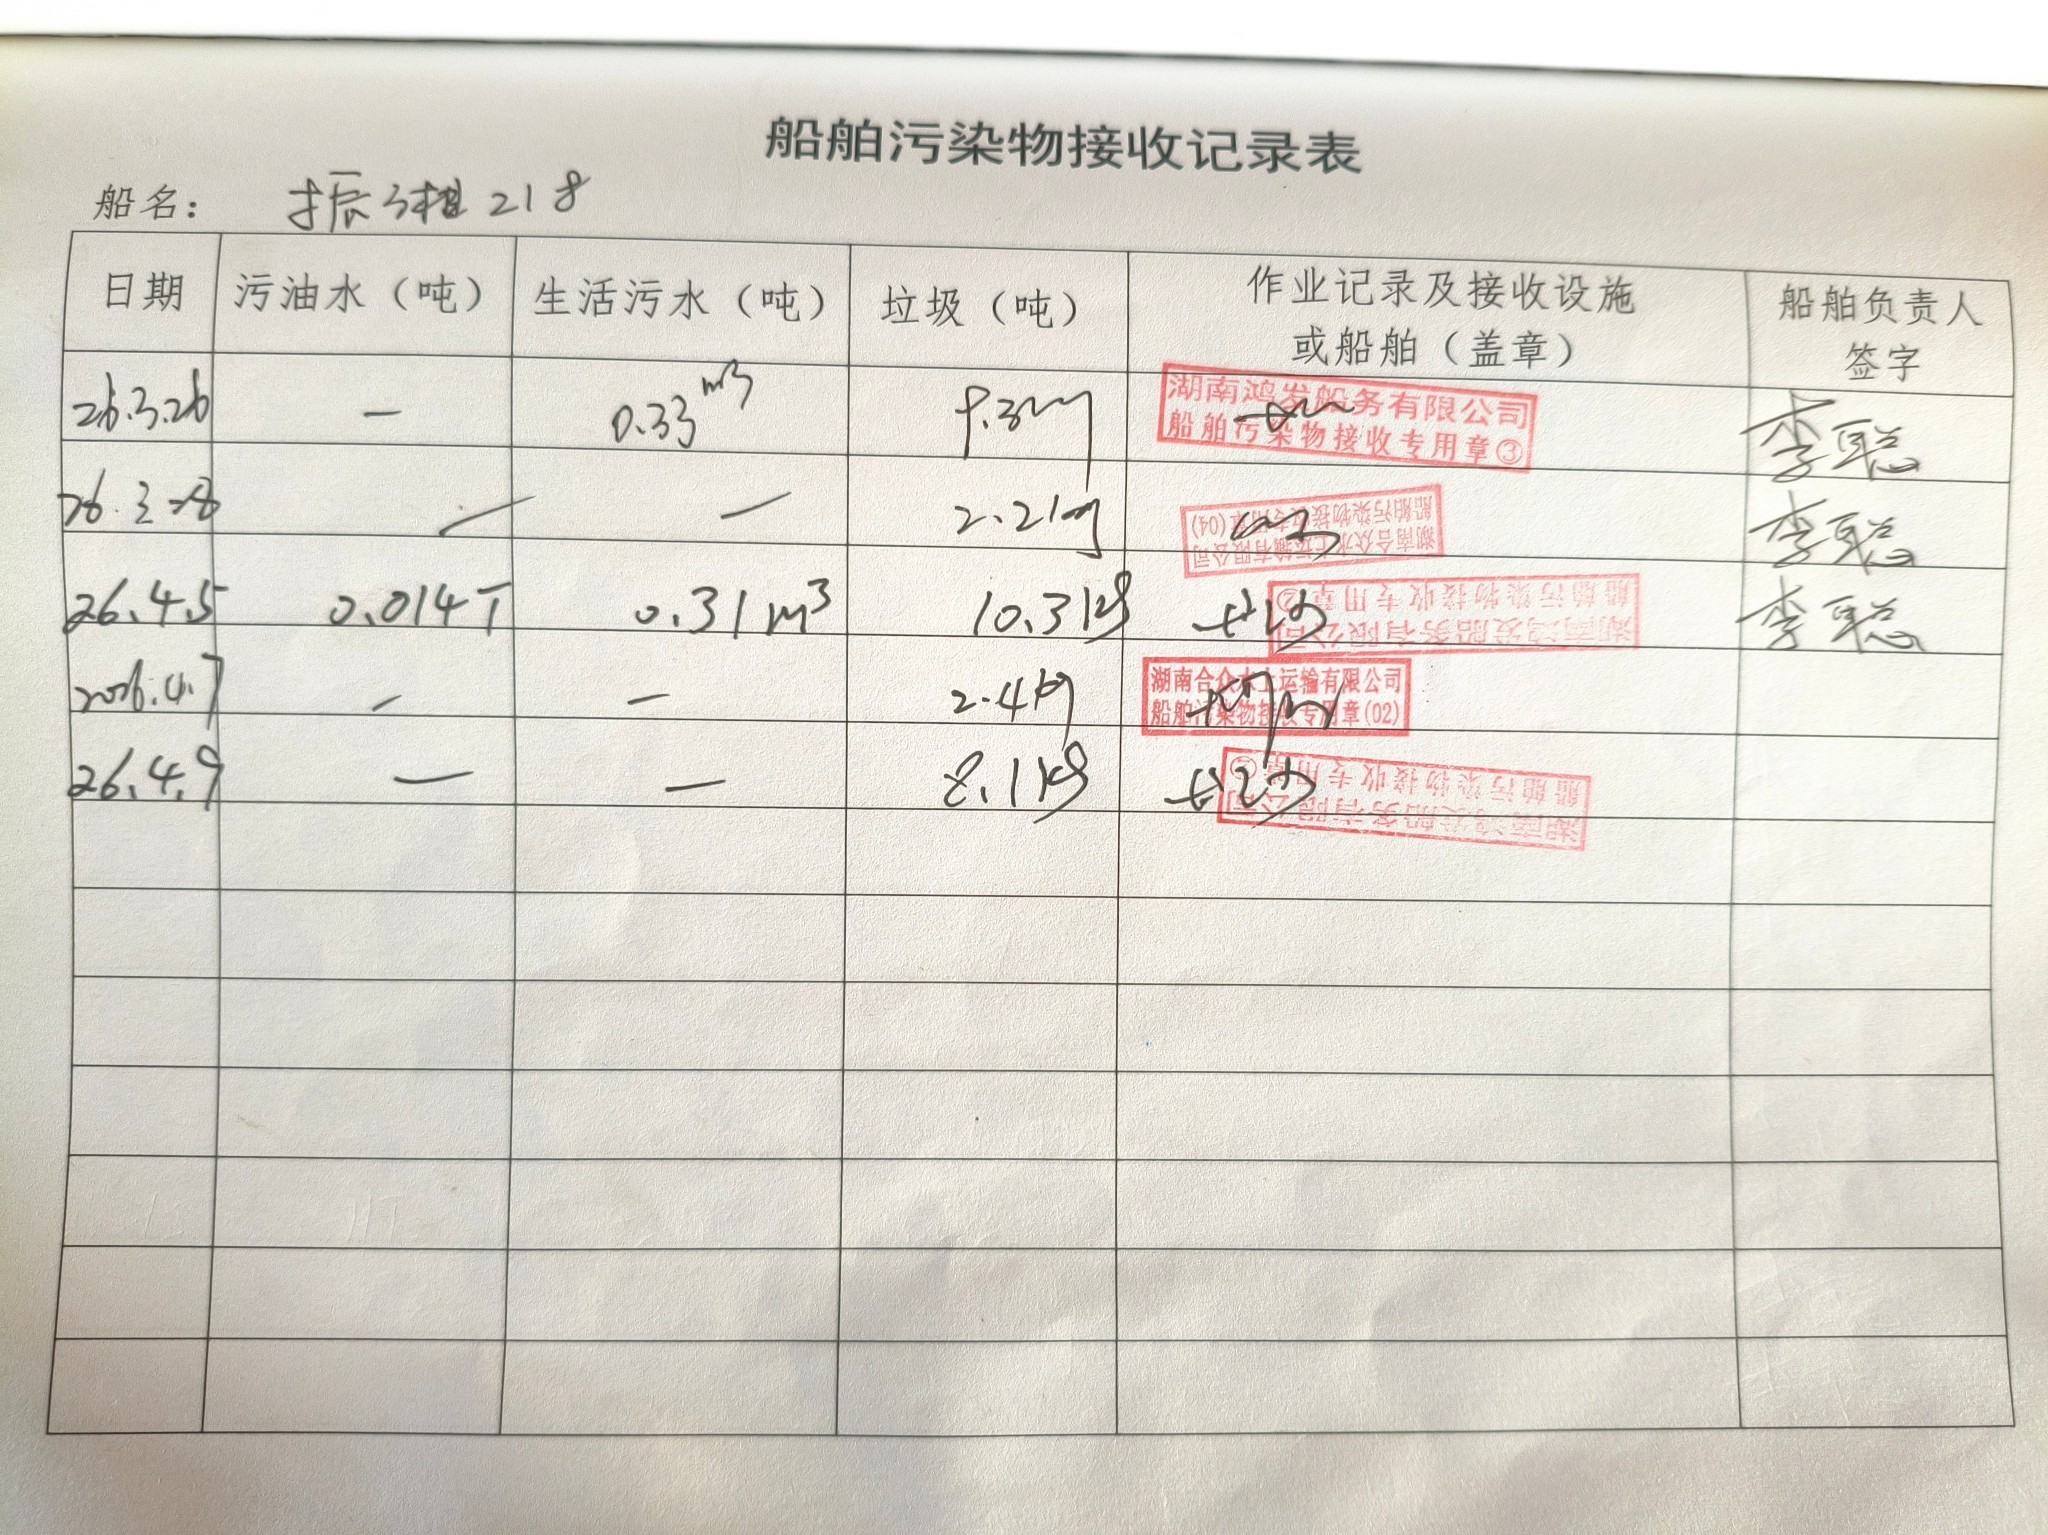 船舶污染物接收记录表
船名： 振湘218
日期 污油水（吨） 生活污水（吨） 垃圾（吨） 作业记录及接收设施或船舶（盖章） 船舶负责人签字
26.3.26 — 0.33m³ 9.3kg 湖南鸿发船务有限公司 船舶污染物接收专用章③ 李聪
26.3.28 — — 2.21kg 湖南合众水上运输有限公司 船舶污染物接收专用章(04) 李聪
26.4.5 0.014T 0.31m³ 10.3kg 湖南鸿发船务有限公司 船舶污染物接收专用章② 李聪
2026.4.7 — — 2.4kg 湖南合众水上运输有限公司 船舶污染物接收专用章(02)
26.4.9 — — 8.1kg 湖南鸿发船务有限公司 船舶污染物接收专用章②